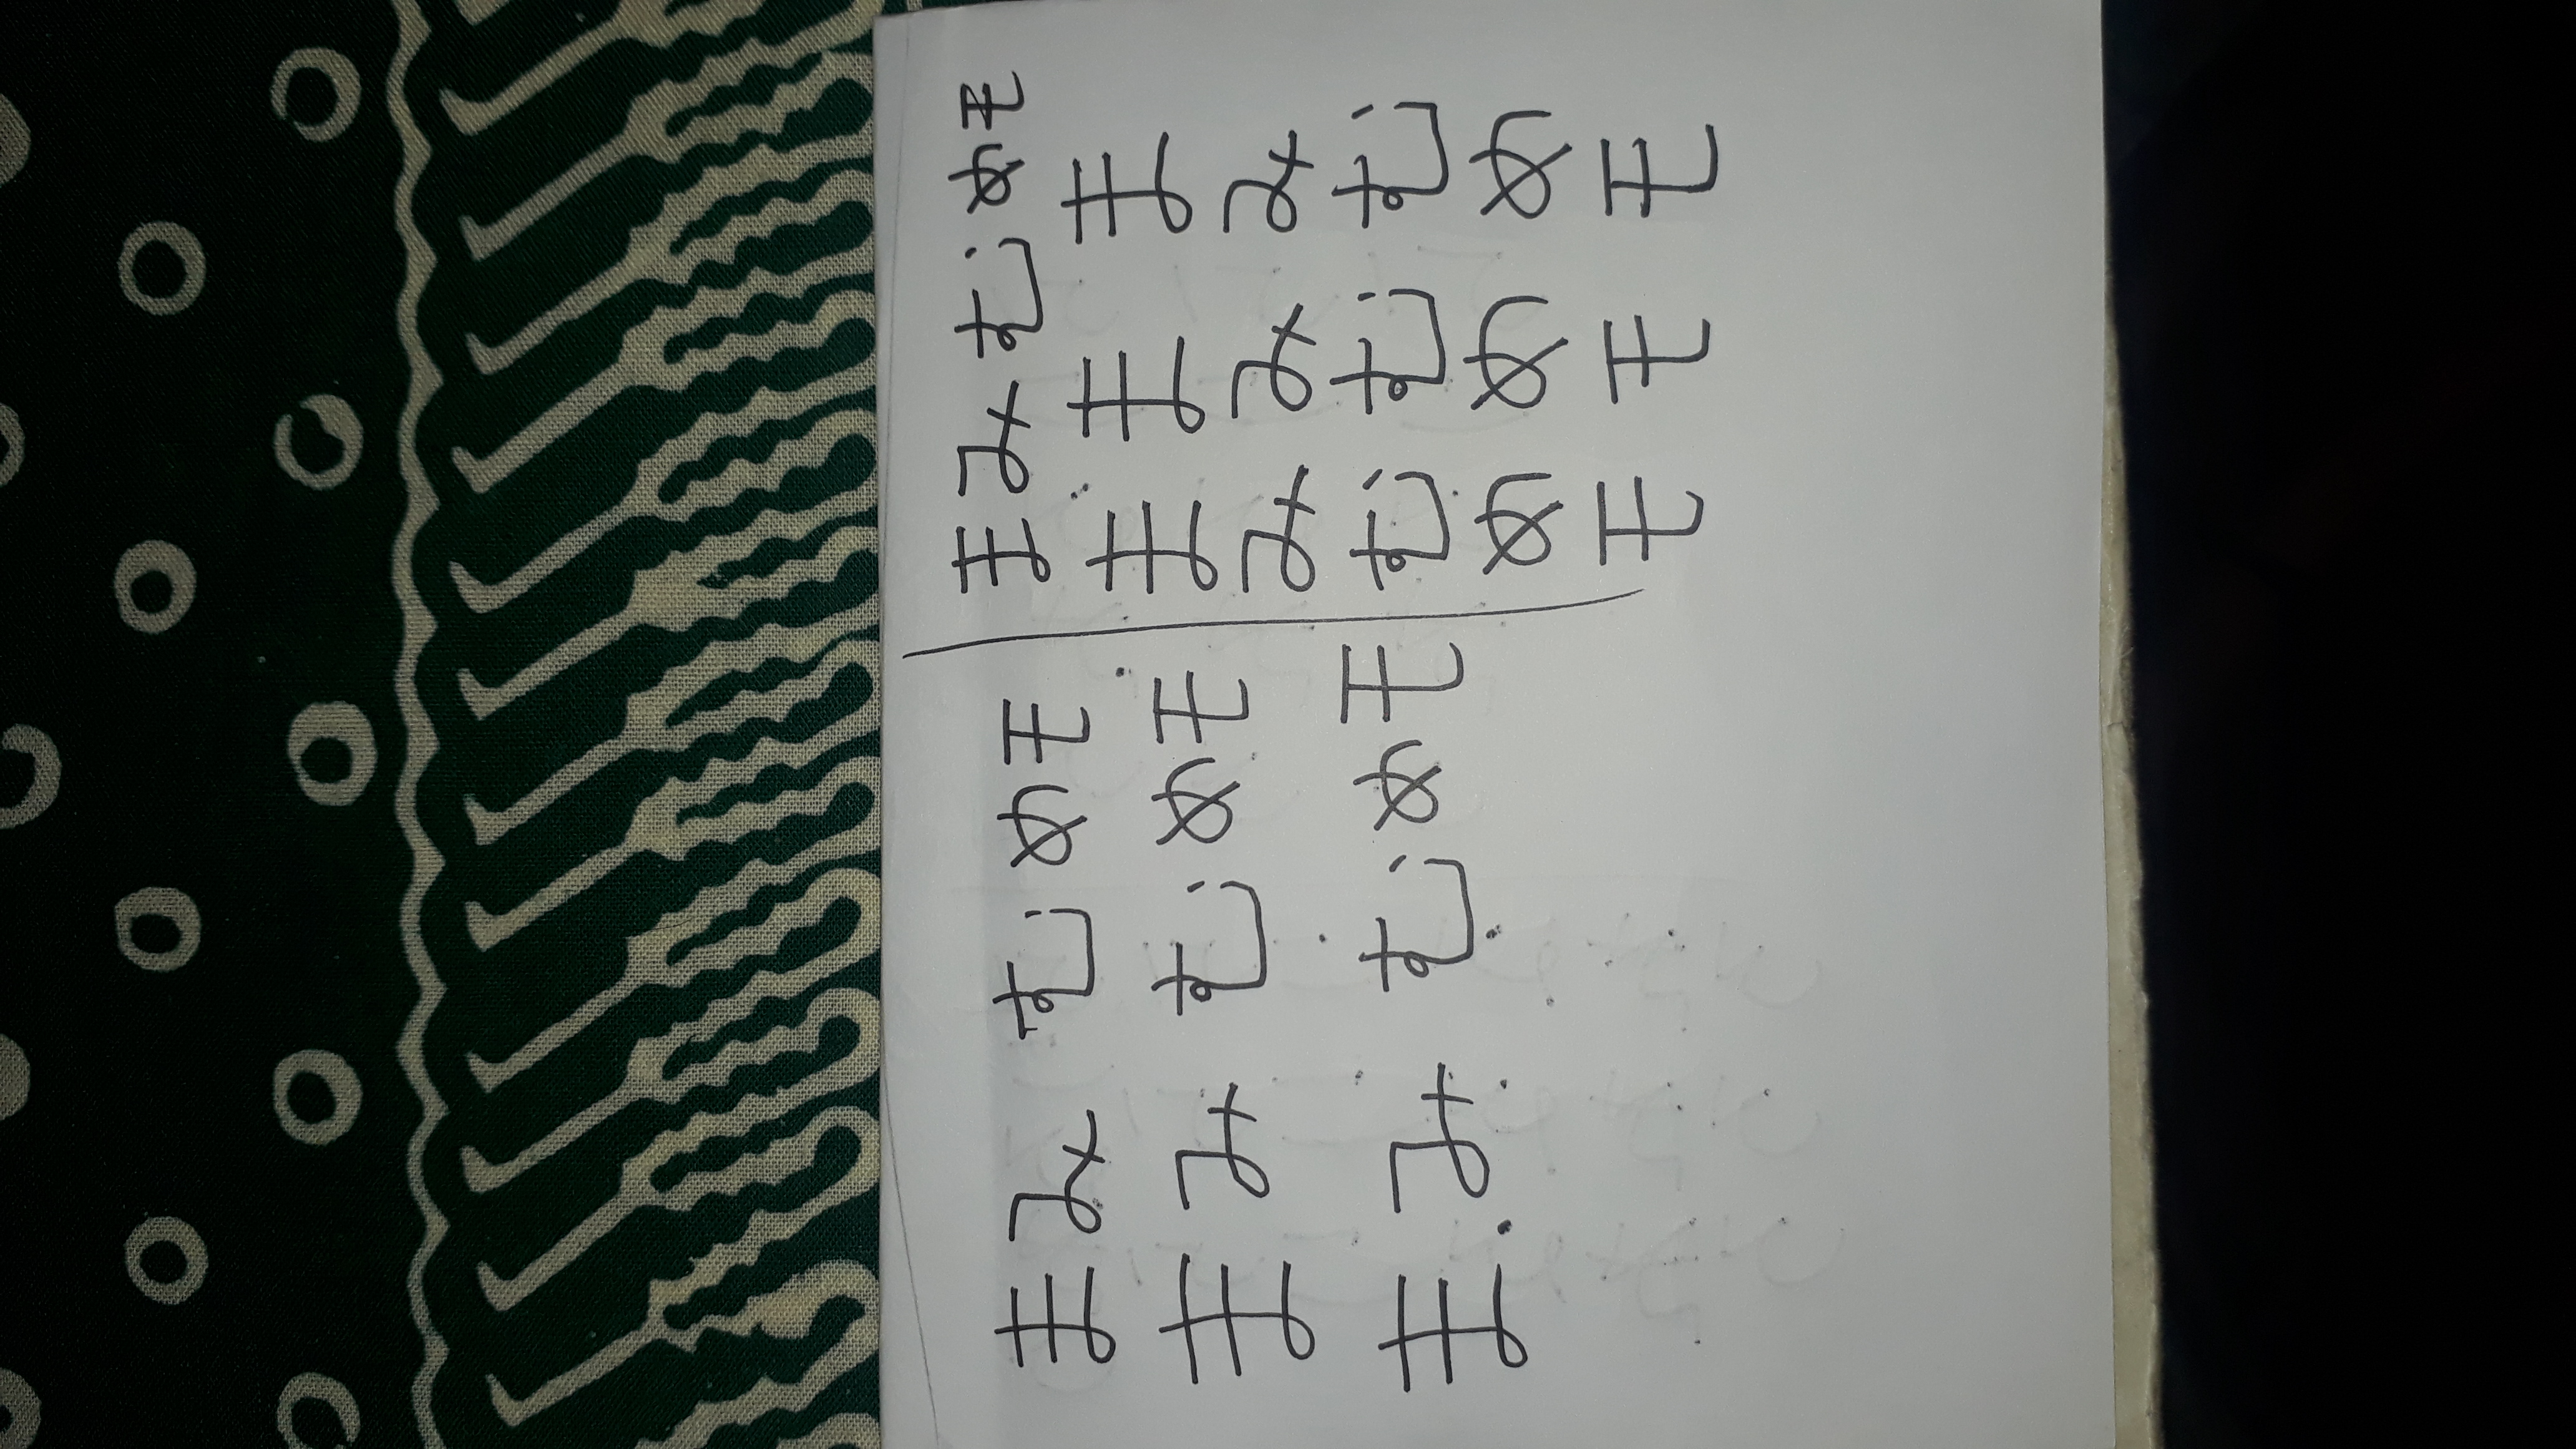 まみむめモ
まみむめモ
まみむめモ
まみむめモ
ままま
みみみ
むむむ
めめめ
モモモ